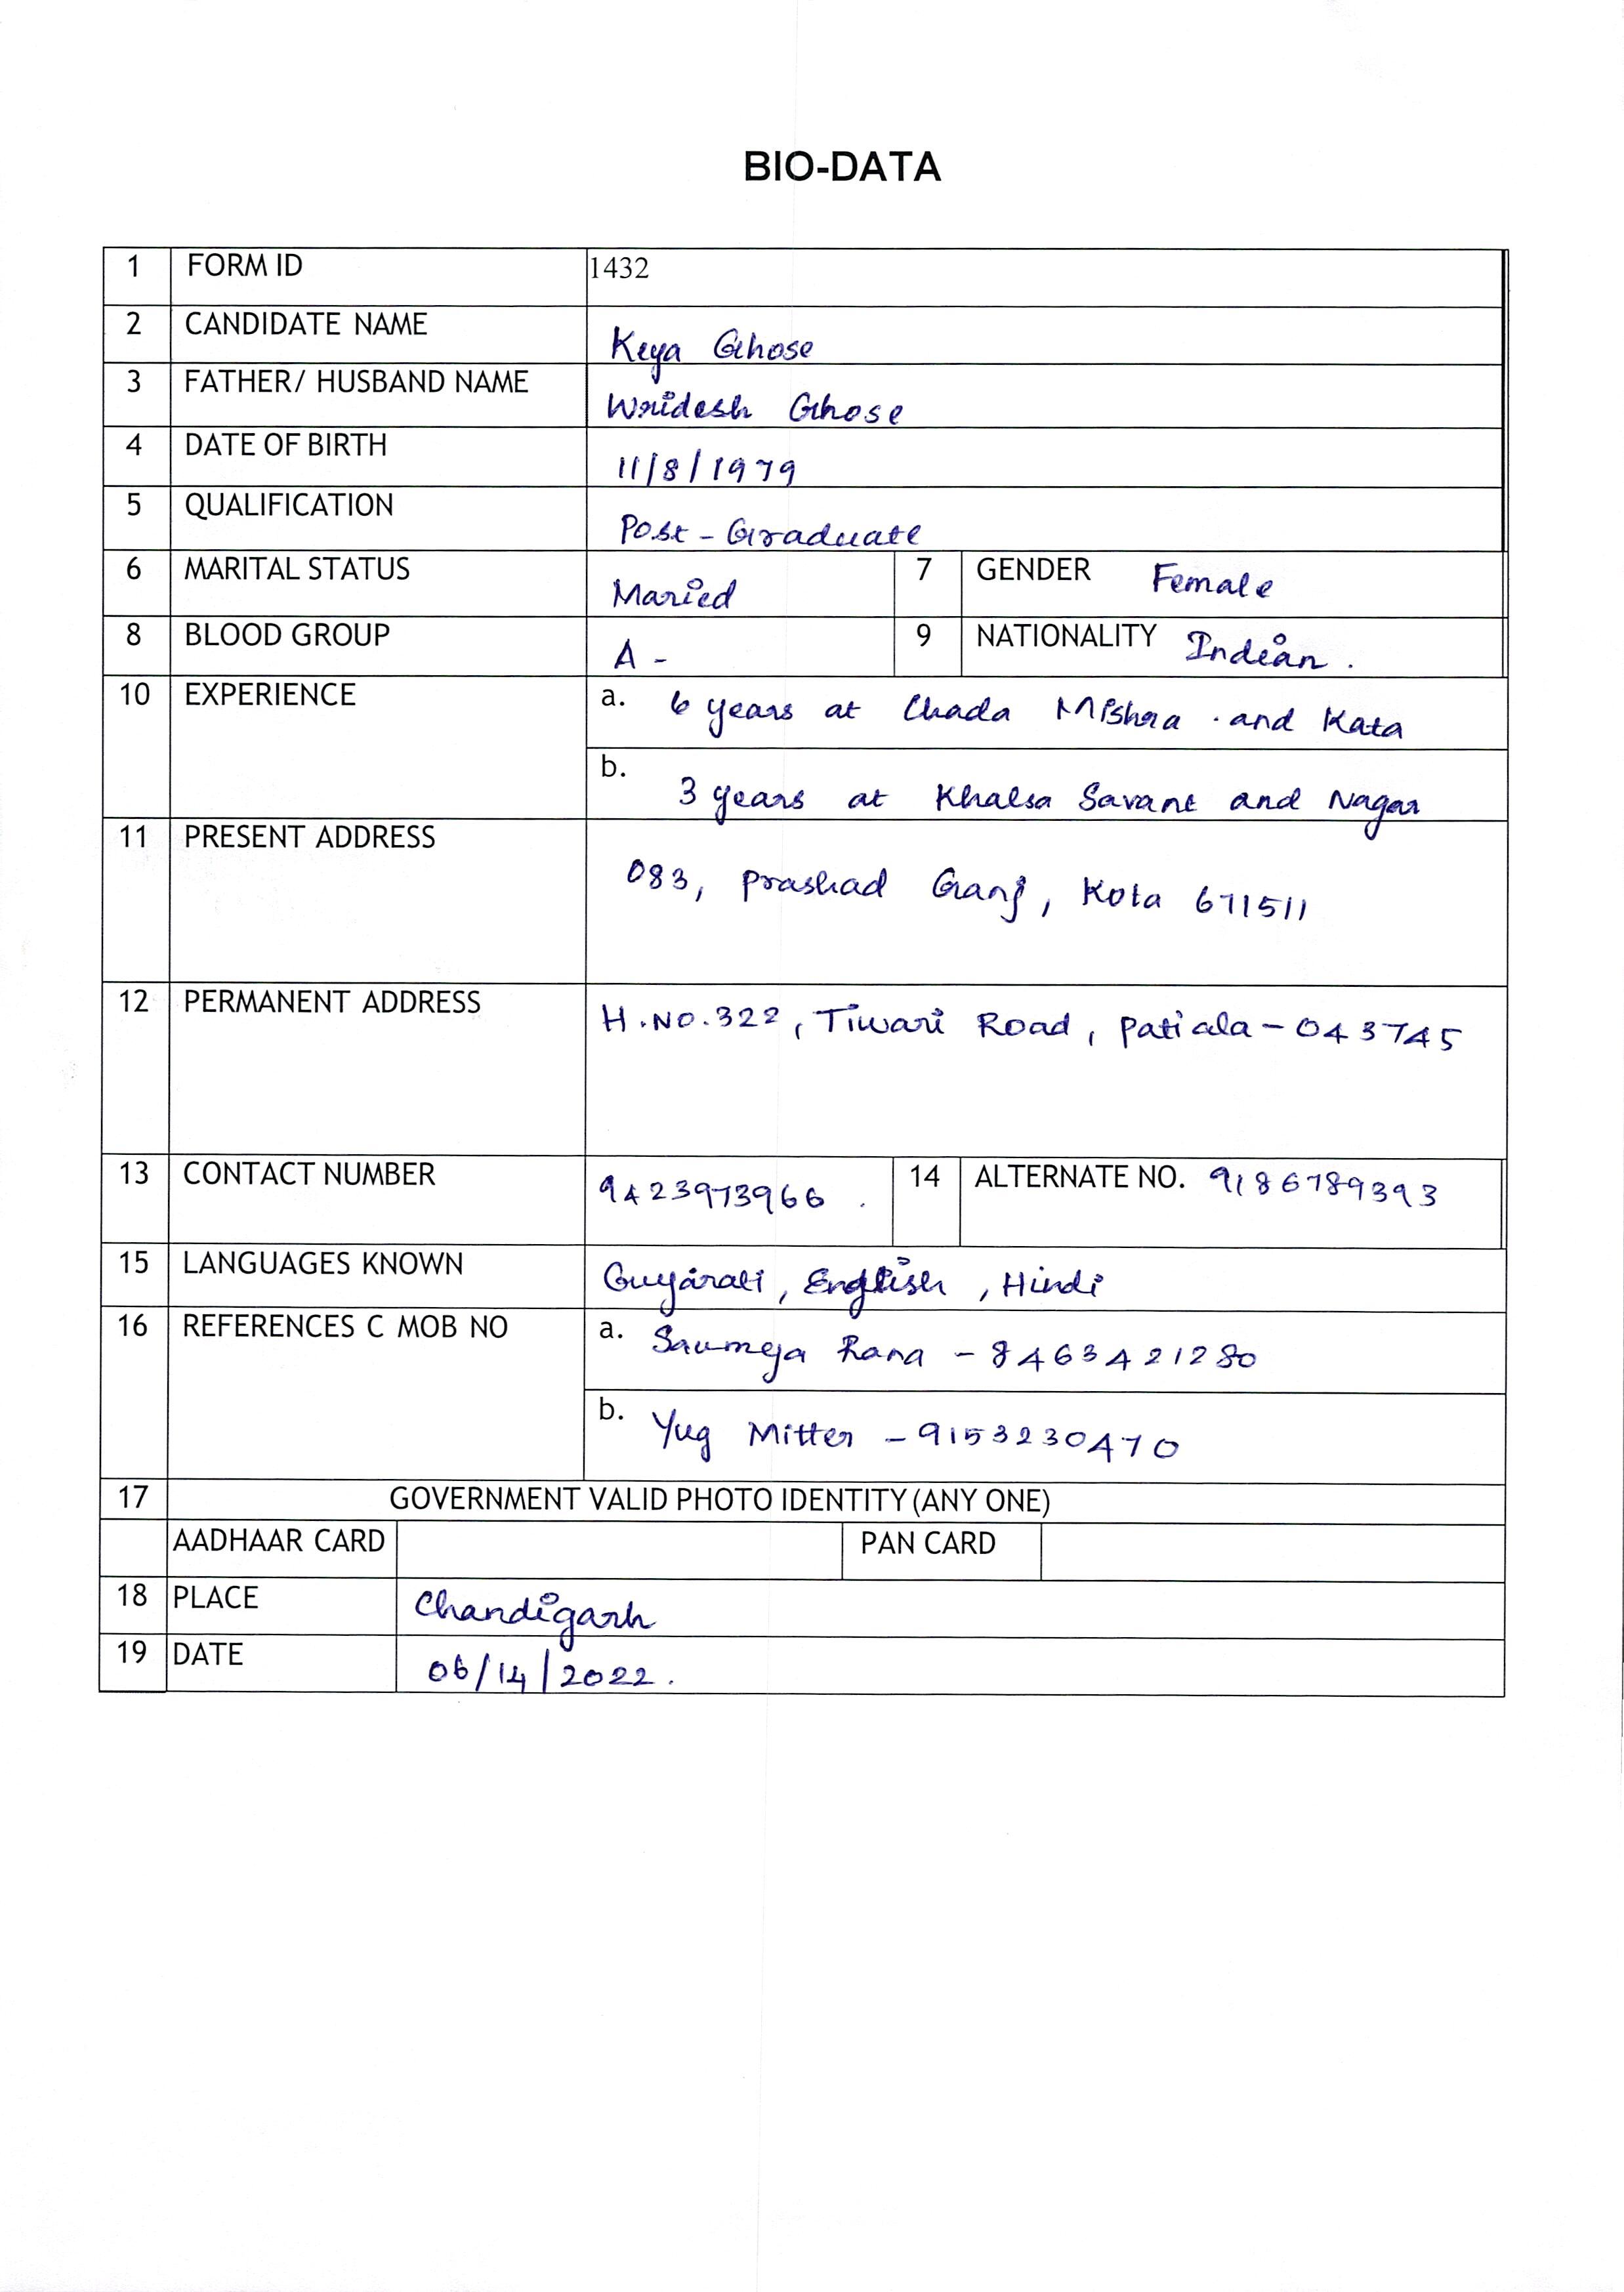 BIO-DATA
1 FORM ID 1432
2 CANDIDATE NAME Keya Ghose
3 FATHER/ HUSBAND NAME Wridesh Ghose
4 DATE OF BIRTH 11/8/1979
5 QUALIFICATION Post-Graduate
6 MARITAL STATUS Maried 7 GENDER Female
8 BLOOD GROUP A - 9 NATIONALITY Indian .
10 EXPERIENCE a. 6 years at Chada Mishra . and Kata
b. 3 years at Khalsa Savant and Nagar
11 PRESENT ADDRESS 083, Prashad Ganj, Kota 671511
12 PERMANENT ADDRESS H.NO.322, Tiwari Road, Patiala-043745
13 CONTACT NUMBER 9423973966 . 14 ALTERNATE NO. 9186789393
15 LANGUAGES KNOWN Gujarati, English, Hindi
16 REFERENCES C MOB NO a. Saumya Rana - 8463421280
b. Yug Mitter - 9153230470
17 GOVERNMENT VALID PHOTO IDENTITY (ANY ONE)
AADHAAR CARD PAN CARD
18 PLACE Chandigarh
19 DATE 06/14/2022.